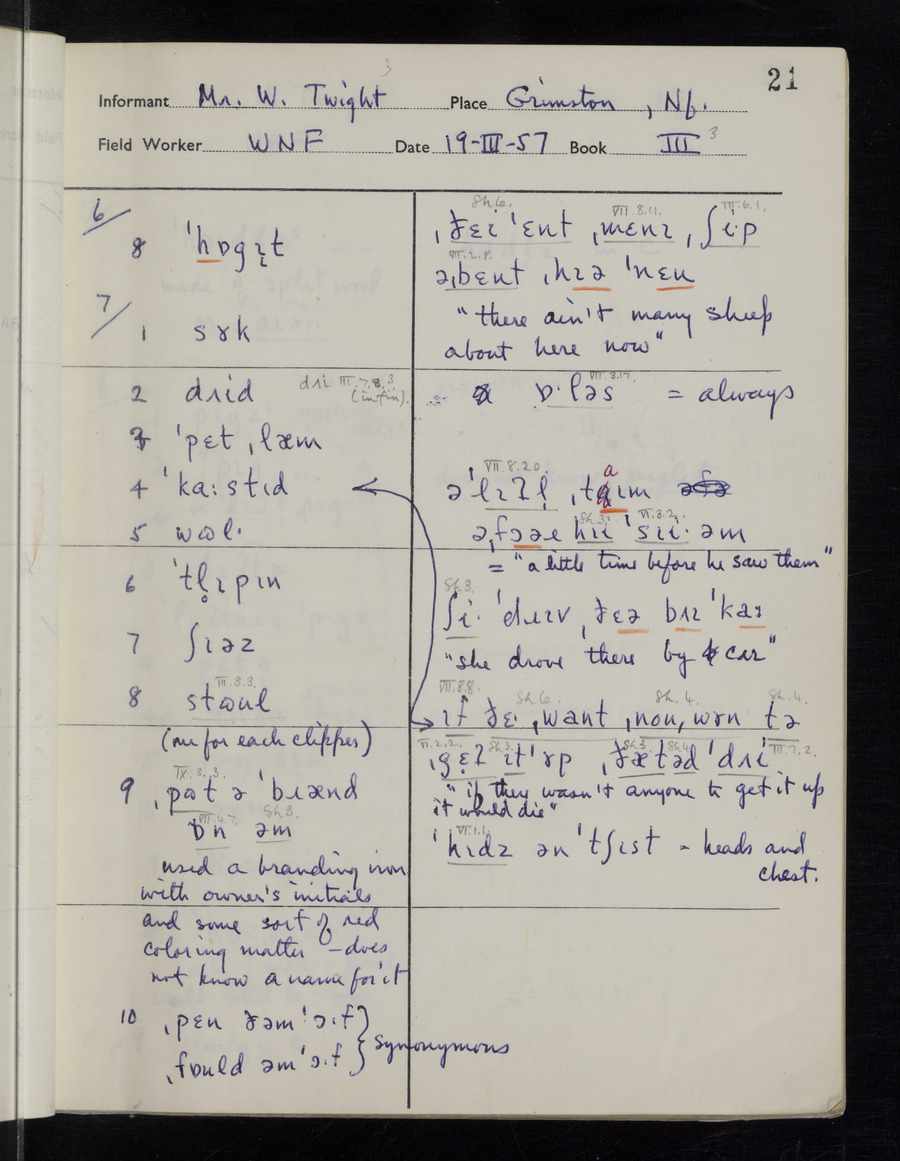 21
3
Informant Mr. W. Twight Place Grimston, Nf.
Field Worker WNF Date 19-III-57 Book III 3
6/
8 ˈhɒgɪt
7/
1 sɤk
2 dɹɪd dɹɪ III.7.8,3
(infin).
3 ˈpɛt ˌlæm
4 ˈkaːstɪd
5 wʊl·
6 ˈtl̥ɪpɪn
7 ʃɪəz
III.3.3.
8 stʊul
(one for each clipper)
IX.3.3.
9 ˌpʊt ə ˈbɹænd
VII.4.7. Sh3.
ɒn əm
used a branding iron
with owner's initials
and some sort of red
coloring matter – does
not know a name for it
10 ˌpɛn ðəm ˈɔːf
ˌfɒuld əm ˈɔːf } synonymous
Sh6. VII.8.11. III.6.1.
ˌðɛi ˈɛnt ˌmɛnɪ ˌʃi·p
VII.2.8.
əˌbɛnt ˌhɪə ˈnɛu
"there ain't many sheep
about here now"
VII.3.17.
ɒ·ləs = always
VII.8.20.
ə ˈlɪʔl̩ ˌtaɪm
Sh3. VI.3.2.
əˌfɔə hɪi ˈsɪi· əm
= "a little time before he saw them"
Sh3.
ʃi· ˈdɹɪv ˌðɛə bɪ ˈkaː
"she drove there by car"
VII.8.8. Sh6. Sh.4. Sh.4.
ɪf ðɛ· ˌwant ˌnɒu ˌwɤn tə
VI.2.2. Sh3. Sh3. Sh4. III.7.2.
ˌgɛʔ ɪt ˈɤp ˌðæt əd ˈdɹɪ
"if they wasn't anyone to get it up
it would die"
VI.1.1.
ˈhɪdz ən ˈtʃɪst = heads and
chest.